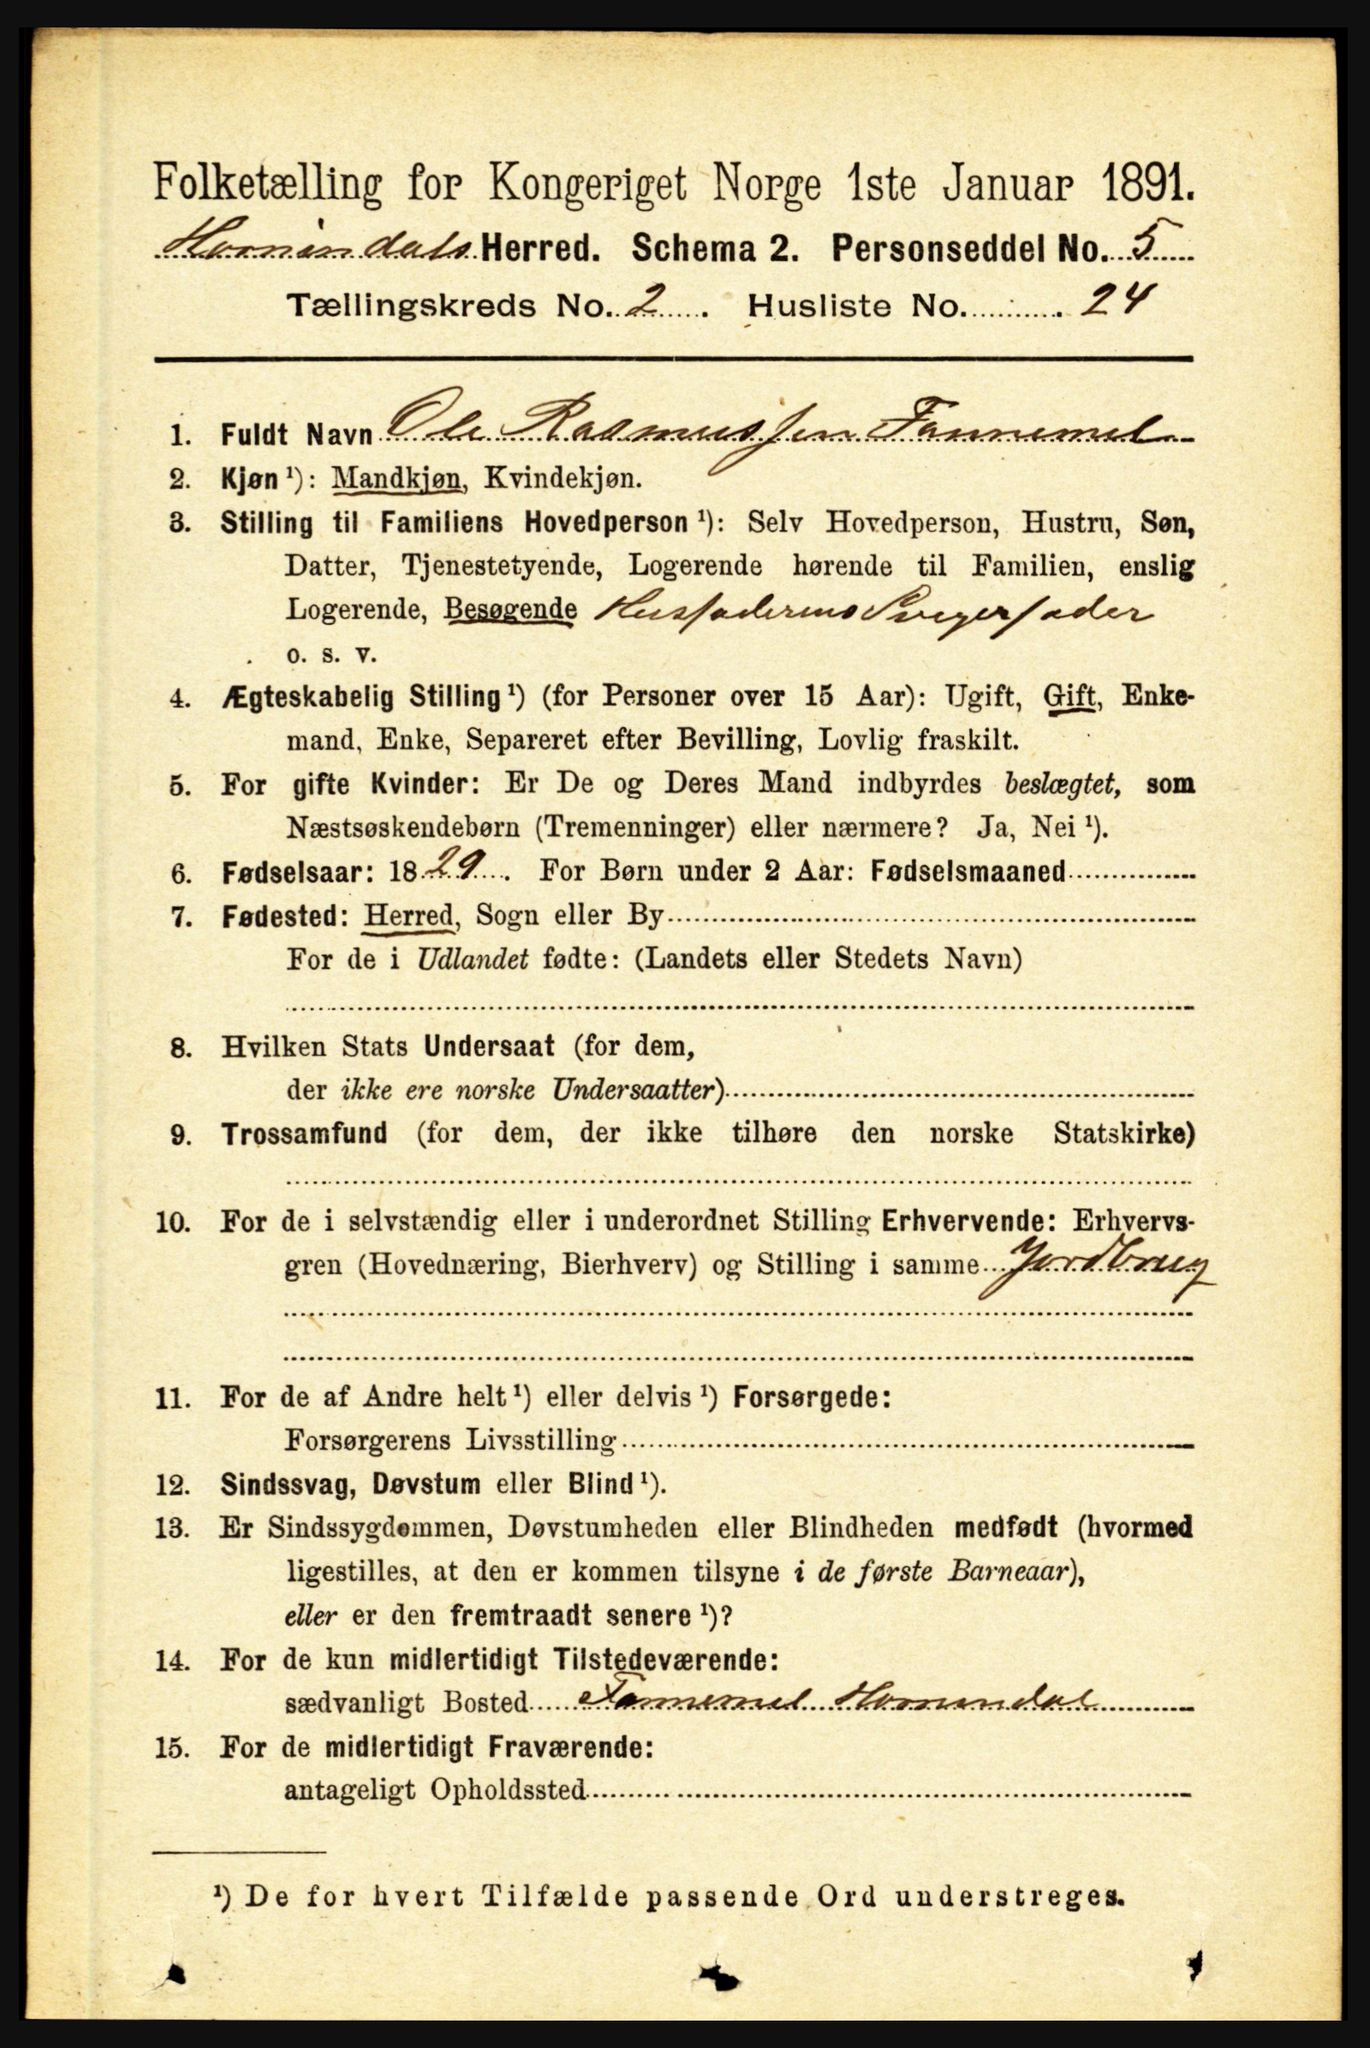 Folketælling for Kongeriget Norge 1ste Januar 1891.
Hornindals Herred. Schema 2. Personseddel No. 5
Tællingskreds No. 2. Husliste No. 24
1. Fuldt Navn Ole Rasmussen Fannemel
2. Kjøn ¹): Mandkjøn, Kvindekjøn.
3. Stilling til Familiens Hovedperson ¹): Selv Hovedperson, Hustru, Søn,
Datter, Tjenestetyende, Logerende hørende til Familien, enslig
Logerende, Besøgende Husfaderens Svigerfader
o. s. v.
4. Ægteskabelig Stilling ¹) (for Personer over 15 Aar): Ugift, Gift, Enke-
mand, Enke, Separeret efter Bevilling, Lovlig fraskilt.
5. For gifte Kvinder: Er De og Deres Mand indbyrdes beslægtet, som
Næstsøskendebørn (Tremenninger) eller nærmere? Ja, Nei ¹).
6. Fødselsaar: 1829. For Børn under 2 Aar: Fødselsmaaned
7. Fødested: Herred, Sogn eller By
For de i Udlandet fødte: (Landets eller Stedets Navn)
8. Hvilken Stats Undersaat (for dem,
der ikke ere norske Undersaatter)
9. Trossamfund (for dem, der ikke tilhøre den norske Statskirke)
10. For de i selvstændig eller i underordnet Stilling Erhvervende: Erhvervs-
gren (Hovednæring, Bierhverv) og Stilling i samme Jordbrug
11. For de af Andre helt ¹) eller delvis ¹) Forsørgede:
Forsørgerens Livsstilling
12. Sindssvag, Døvstum eller Blind ¹).
13. Er Sindssygdommen, Døvstumheden eller Blindheden medfødt (hvormed
ligestilles, at den er kommen tilsyne i de første Barneaar),
eller er den fremtraadt senere ¹)?
14. For de kun midlertidigt Tilstedeværende:
sædvanligt Bosted Fannemel Hornindal
15. For de midlertidigt Fraværende:
antageligt Opholdssted
¹) De for hvert Tilfælde passende Ord understreges.